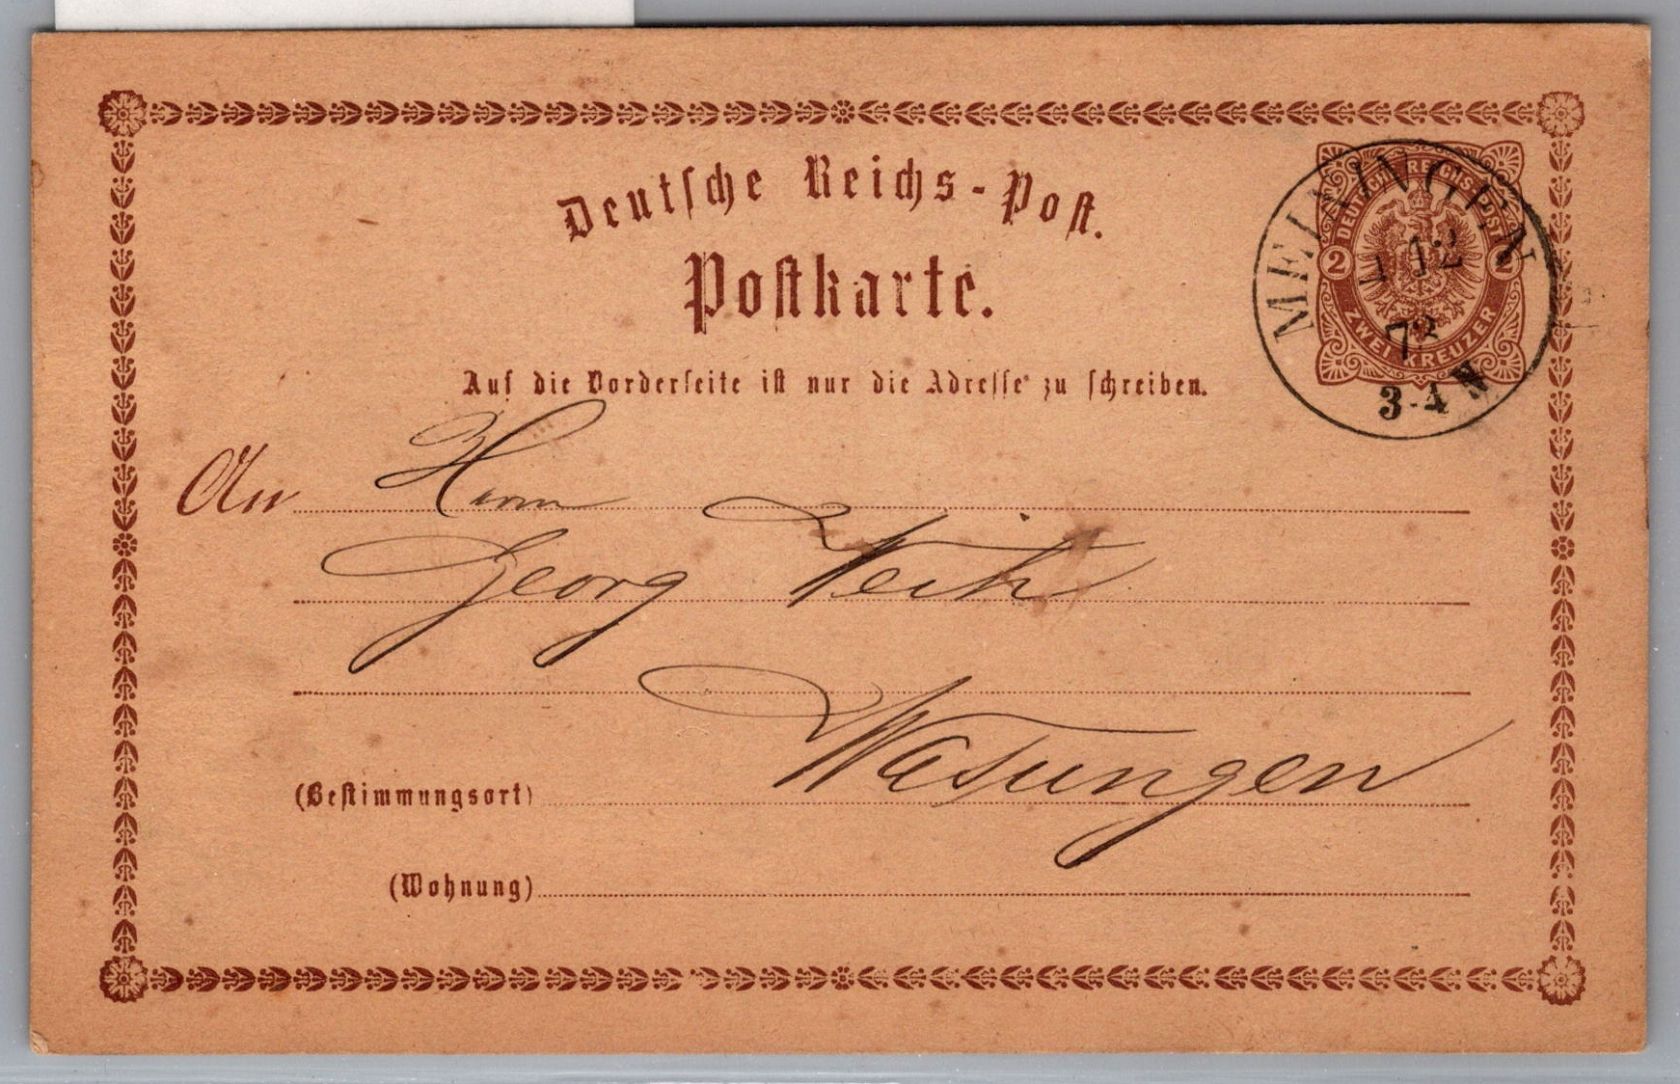 Deutsche Reichs-Post.
Postkarte.
DEUTSCHE REICHS-POST
2 2
ZWEI KREUZER
MEININGEN
12
3-4 N
Auf die Vorderseite ist nur die Adresse zu schreiben.
An Herrn
Georg Veit
Wasungen
(Bestimmungsort)
(Wohnung)